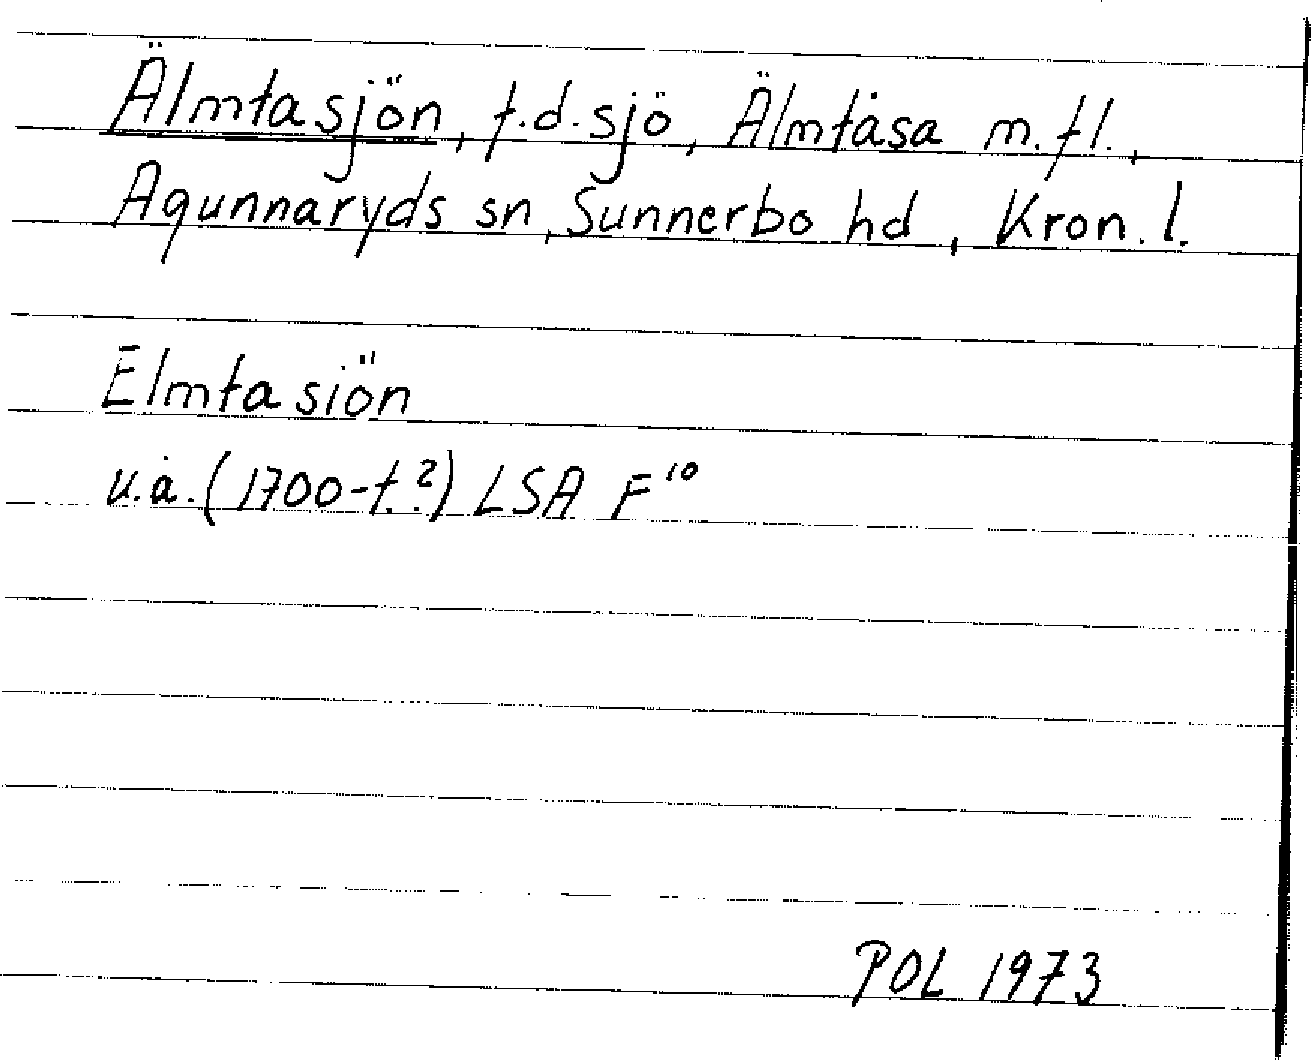 Älmtasjön, f.d. sjö, Älmtåsa m.fl.,
Agunnaryds sn, Sunnerbo hd, Kron. l.
Elmtasiön
u.å. (1700-t.?) LSA F¹⁰
POL 1973